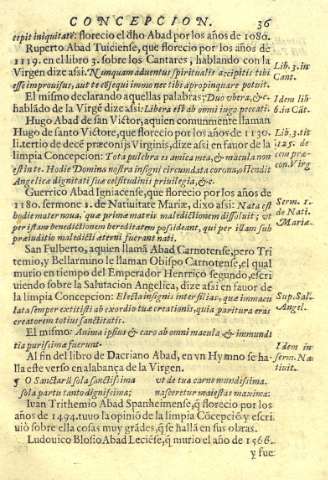 CONCEPCION. 36
cepit iniquitate: florecio el dho Abad por los años de 1080.
Ruperto Abad Tuiciense, que florecio por los años de
1119. en el libro 3. sobre los Cantares, hablando con la
Virgen dize asi: Nunquam aduentus spiritualis accipitis tibi
esse improuisus, aut te obsequi immo nec tibi apropinquare potuit.
Lib. 3. in
Cant.
El mismo declarando aquellas palabras: Duo vbera, &c.
hablãdo de la Virgẽ dize asi: Libera est ab omni iugo peccati.
Idem lib
6. in Cãt
Hugo Abad de san Victor, aquien comunmente llaman
Hugo de santo Victore, que florecio por los años de 1130.
li. tertio de decẽ præconijs Virginis, dize asi en fauor de la
limpia Concepcion: Tota pulcra es amica mea, & macula non
est in te. Hodie Domino nostra insigni circundata corona, ostendit
Angelica dignitatis suæ celsitudinis priuilegia, &c.
Lib. 3. tit
125. de
cem præ-
con. Virg
Guerrico Abad Igniacense, que florecio por los años de
1180. sermone 1. de Natiuitate Mariæ, dixo asi: Nata est
hodie mater noua, quæ primæ matris maledictionem dissoluit; vt
per istam benedictionem hereditatem possideant, qui per illam sub
præiuditio maledicti æterni fuerant nati.
Serm. 1.
de Nati.
Mariæ.
San Fulberto, aquien llamã Abad Carnotense, pero Tri
temio, y Bellarmino le llaman Obispo Carnotense, el qual
murio en tiempo del Emperador Henrrico segundo, escri
uiendo sobre la Salutacion Angelica, dize asi en fauor de
la limpia Concepcion: Electa insignis inter filias, que immacu
lata semper extitisti ab exordio tuæ creationis, quia paritura eras
creatorem totius sanctitatis.
Sup. Sal.
Angel.
El mismo: Anima ipsius & caro ab omni macula & immundi
tia purissima fuerunt.
Idem in
serm. Na
tiuit.
Al fin del libro de Dacriano Abad, en vn Hymno se ha
lla este verso en alabança de la Virgen.
5 O Sanctarũ sola sanctissima vt de tua carne mundissima.
sola partu tanto dignissima; nasceretur maiestas maxima:
Iuan Trithemio Abad Spanheimense, q̃ florecio por los
años de 1494. tuuo la opiniõ de la limpia Cõcepciõ y escri
uiò sobre ella cosas muy grãdes, q̃ se hallã en sus obras.
Ludouico Blosio Abad Leciẽse, q̃ murio el año de 1566.
y fue